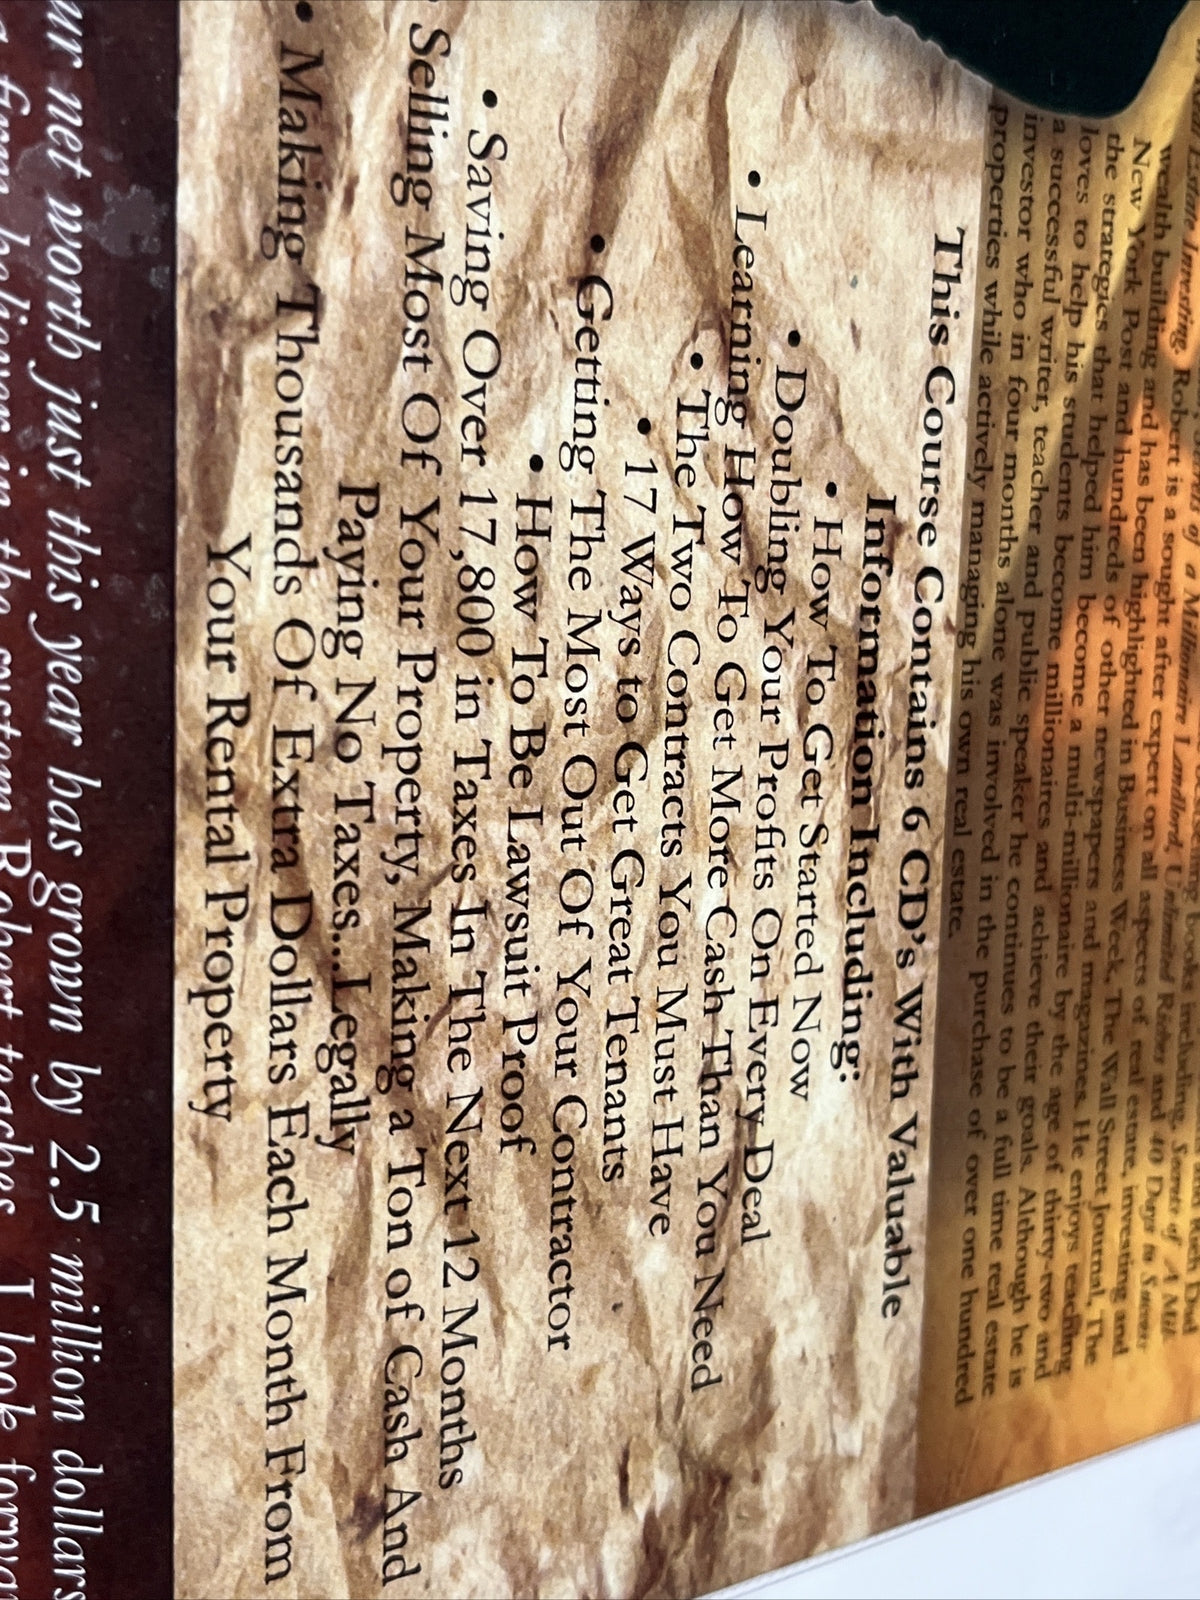 Estate Investing. Robert is a sought after expert on all aspects of real estate, investing and
wealth building and has been highlighted in Business Week, The Wall Street Journal, The
New York Post and hundreds of other newspapers and magazines. He enjoys teaching
the strategies that helped him become a multi-millionaire by the age of thirty-two and
loves to help his students become millionaires and achieve their goals. Although he is
a successful writer, teacher and public speaker he continues to be a full time real estate
investor who in four months alone was involved in the purchase of over one hundred
properties while actively managing his own real estate.
This Course Contains 6 CD's With Valuable
Information Including:
• How To Get Started Now
• Doubling Your Profits On Every Deal
• Learning How To Get More Cash Than You Need
• The Two Contracts You Must Have
• 17 Ways to Get Great Tenants
• Getting The Most Out Of Your Contractor
• How To Be Lawsuit Proof
• Saving Over 17,800 in Taxes In The Next 12 Months
• Selling Most Of Your Property, Making a Ton of Cash And
Paying No Taxes...Legally
• Making Thousands Of Extra Dollars Each Month From
Your Rental Property
ur net worth just this year has grown by 2.5 million dollars
firm believer in the system Robert teaches. I look